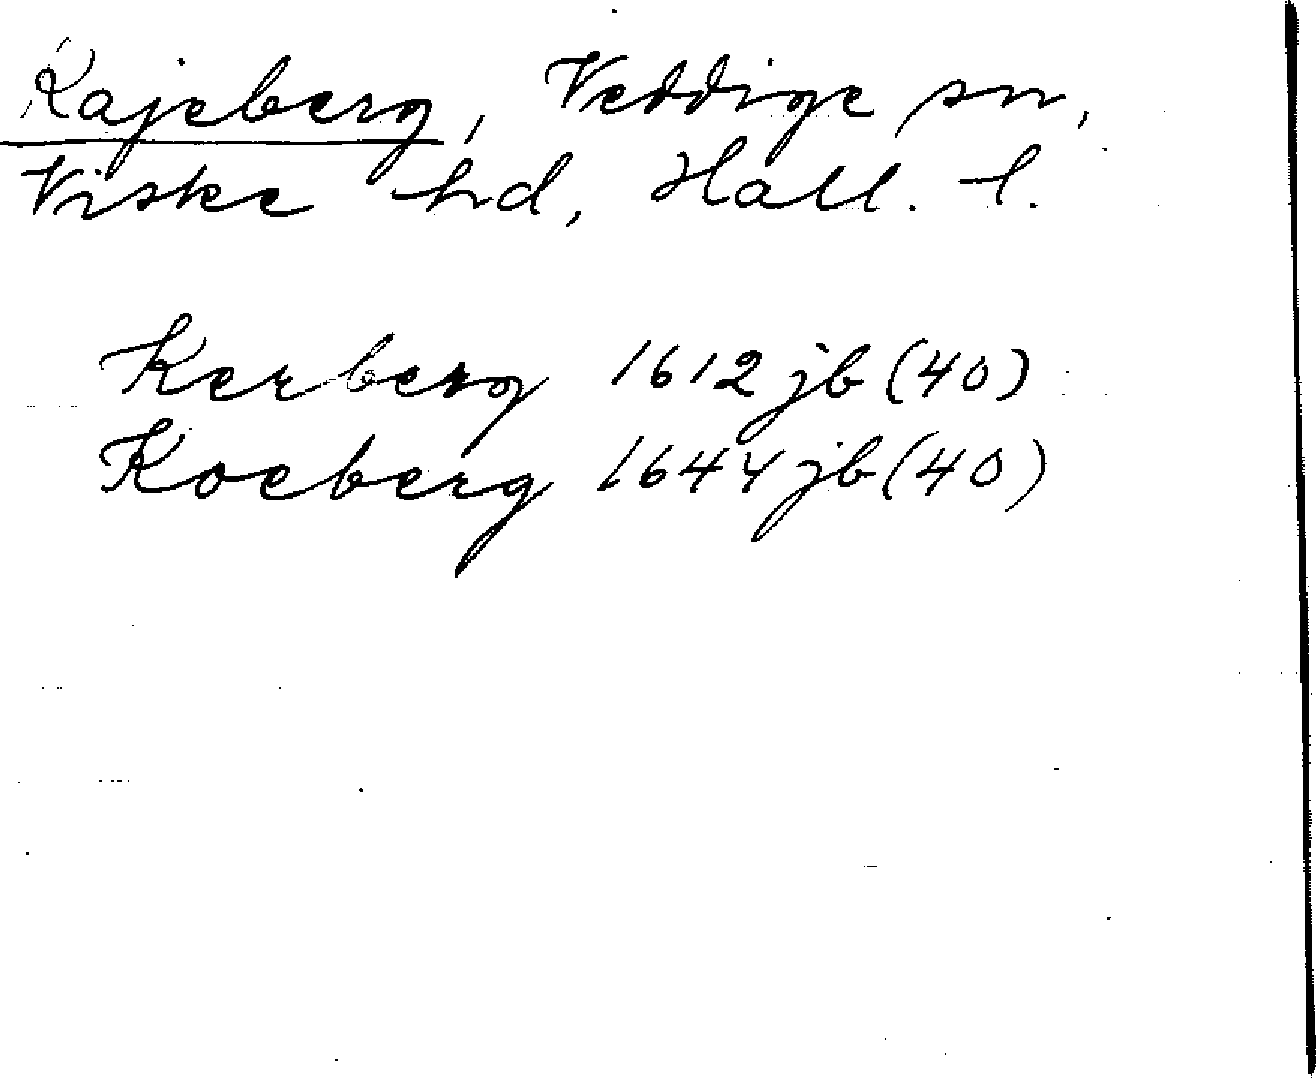 Kajeberg, Veddige sn,
Viske hd, Hall. l.
Kerberg 1612 jb (40)
Koeberg 1644 jb (40)